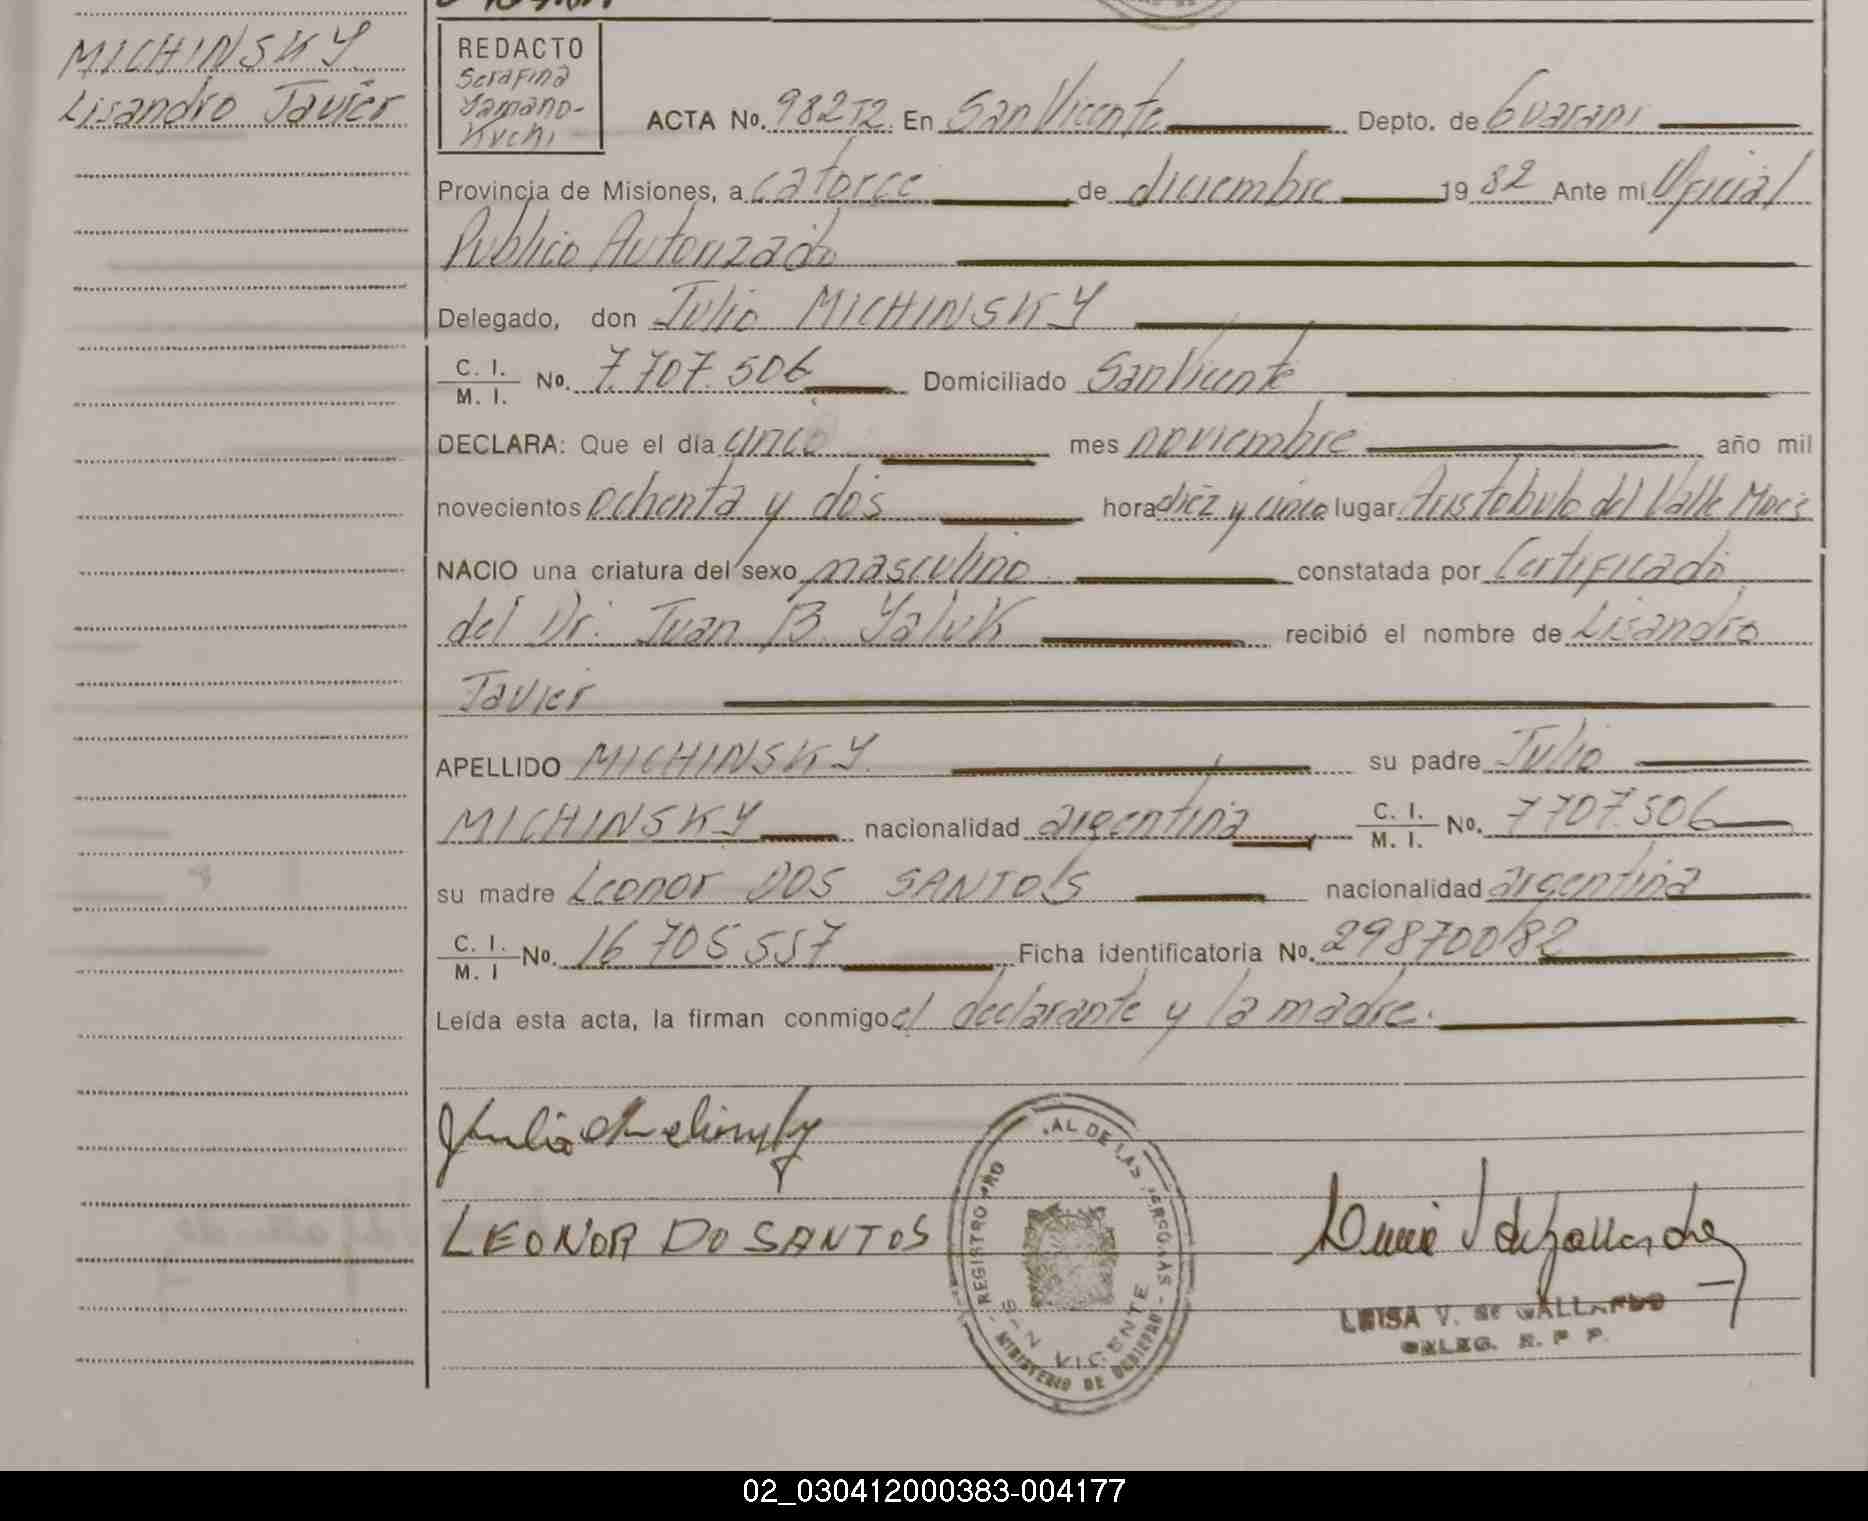 MICHINSKY
Lisandro Javier
REDACTO
Serafina
Yamano-
Kuchi
ACTA No. 982T2. En San Vicente Depto. de Guarani
Provincia de Misiones, a catorce de diciembre 19 82 Ante mi Oficial
Publico Autorizado
Delegado, don Julio MICHINSKY
C. I.
M. I. No. 7.707.506 Domiciliado San Vicente
DECLARA: Que el día cinco mes noviembre año mil
novecientos ochenta y dos hora diez y cinco lugar Aristobulo del Valle Mnes
NACIO una criatura del sexo masculino constatada por Certificado
del Dr. Juan B. Yaluk recibió el nombre de Lisandro
Javier
APELLIDO MICHINSKY su padre Julio
MICHINSKY nacionalidad argentina C. I.
M. I. No. 7707.506
su madre Leonor DOS SANTOS nacionalidad argentina
C. I.
M. I No. 16 705 557 Ficha identificatoria No. 298700/82
Leída esta acta, la firman conmigo el declarante y la madre.
Julio Michinsky
LEONOR DO SANTOS
REGISTRO PRO AL DE LAS PERSONAS
SAN VICENTE
MINISTERIO DE GOBIERNO
LUISA V. de GALLARDO
DELEG. R. P P.
02_030412000383-004177